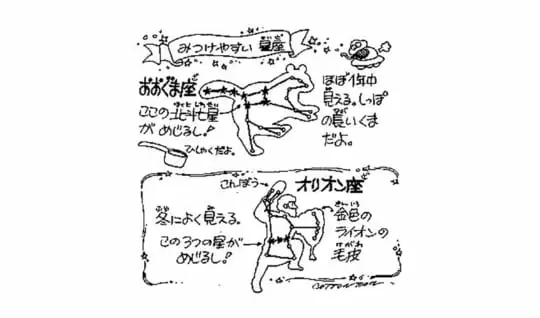 みつけやすい 星座
おおぐま座
ここの北斗七星
がめじるし!
ひしゃくだよ。
ほぼ1年中
見える。しっぽ
の長いくま
だよ。
こんぼう
オリオン座
冬によく見える。
この3つの星が
めじるし!
金色の
ライオンの
毛皮